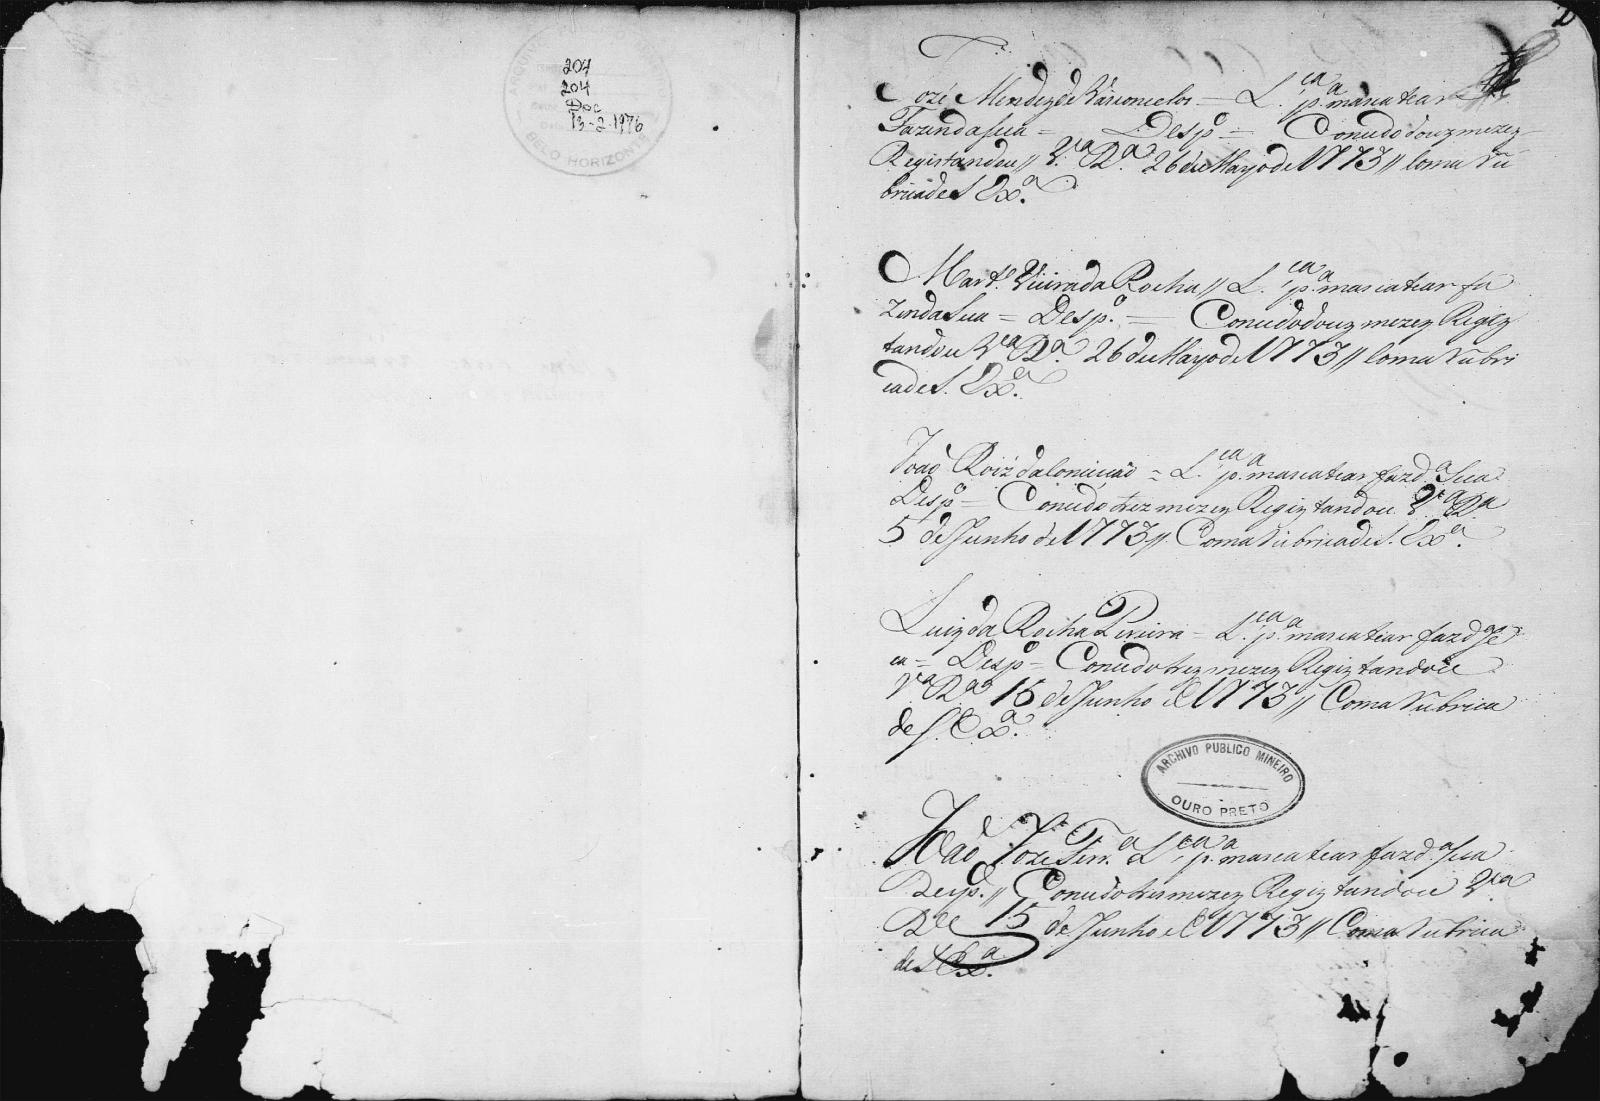 ARQUIVO PUBLICO
BELO HORIZONTE
204
204
Doc
13-2-1976
2
Jozé Mendez de Vasconcelos = L.ca p.a mascatear
Fazenda sua = Desp.o = Concedo douz mezez
Registandou // V.a R.a 26 de Mayo de 1773 // Coma Ru
brica de S. Ex.a
Mart.o Vieira da Rocha // L.ca p.a mascatear fa
zenda sua = Desp.o = Concedo douz mezez Regiz
tandou V.a R.a 26 de Mayo de 1773 // Coma Rubri
ca de S. Ex.a
João Roiz da Conceição = L.ca p.a mascatear fazd.a sua
Desp.o = Concedo trez mezez Regiztandou V.a R.a
5 de Junho de 1773 // Coma Rubrica de S. Ex.a
Luiz da Rocha Pereira = L.ca p.a mascatear fazd.a su
a = Desp.o = Concedo trez mezez Regiztandoce
V.a R.a 15 de Junho de 1773 // Coma Rubrica
de S. Ex.a
ARCHIVO PUBLICO MINEIRO
OURO PRETO
João Joze Ferr.a L.ca p.a mascatear fazd.a sua
Desp.o // Concedo tres mezez Regiztandoce V.a
15 de Junho de 1773 // Coma Rubrica
de S. Ex.a